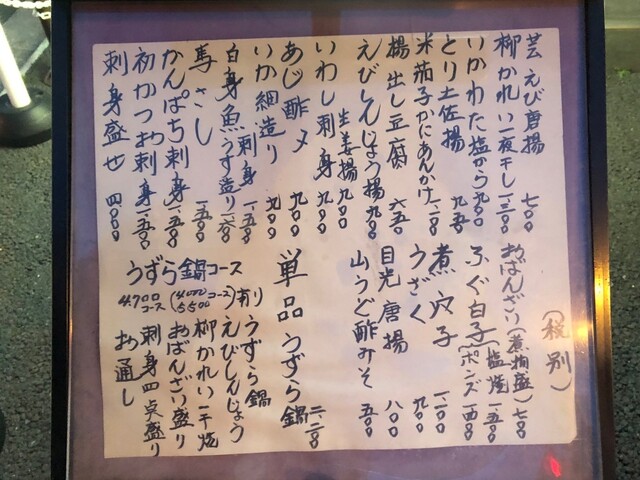 芸えび唐揚 七〇〇
柳かれい一夜干し 一、三〇〇
いかわた塩から 九〇〇
とり土佐揚 九五〇
米茄子かにあんかけ 一、二〇〇
揚出し豆腐 六五〇
えびしんじょう揚 九〇〇
生姜揚 九〇〇
いわし刺身 九〇〇
あじ酢〆 九〇〇
いか細造り 九〇〇
刺身 一、五〇〇
白身魚うす造り 一、六〇〇
馬さし 一、五〇〇
かんぱち刺身 一、五〇〇
初かつお刺身 一、五〇〇
刺身盛せ 四〇〇〇
(税別)
おばんざい(煮物盛) 七〇〇
ふぐ白子(塩焼 一、五〇〇
ポンズ 一、四〇〇
煮穴子 一、一〇〇
うざく 九〇〇
目光唐揚 八〇〇
山うど酢みそ 五〇〇
単品うずら鍋 二、二〇〇
うずら鍋コース
4,700コース(4,000 5,500コース)有り
うずら鍋
えびしんじょう
柳かれい一干焼
おばんざい盛り
刺身四点盛り
お通し